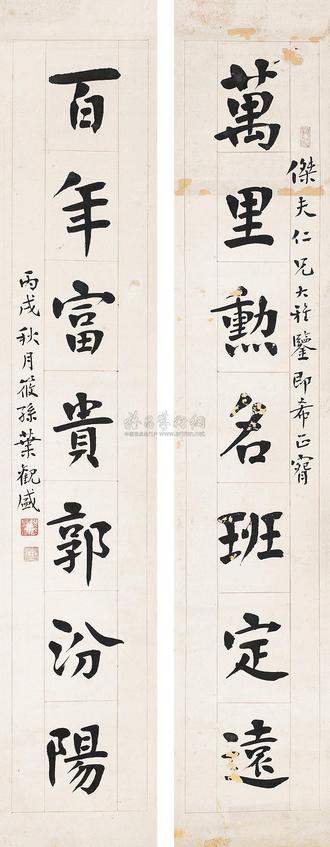 傑夫仁兄大雅鑒即希正
萬里勲名班定遠
百年富貴郭汾陽
丙戌秋月筱孫葉觀盛